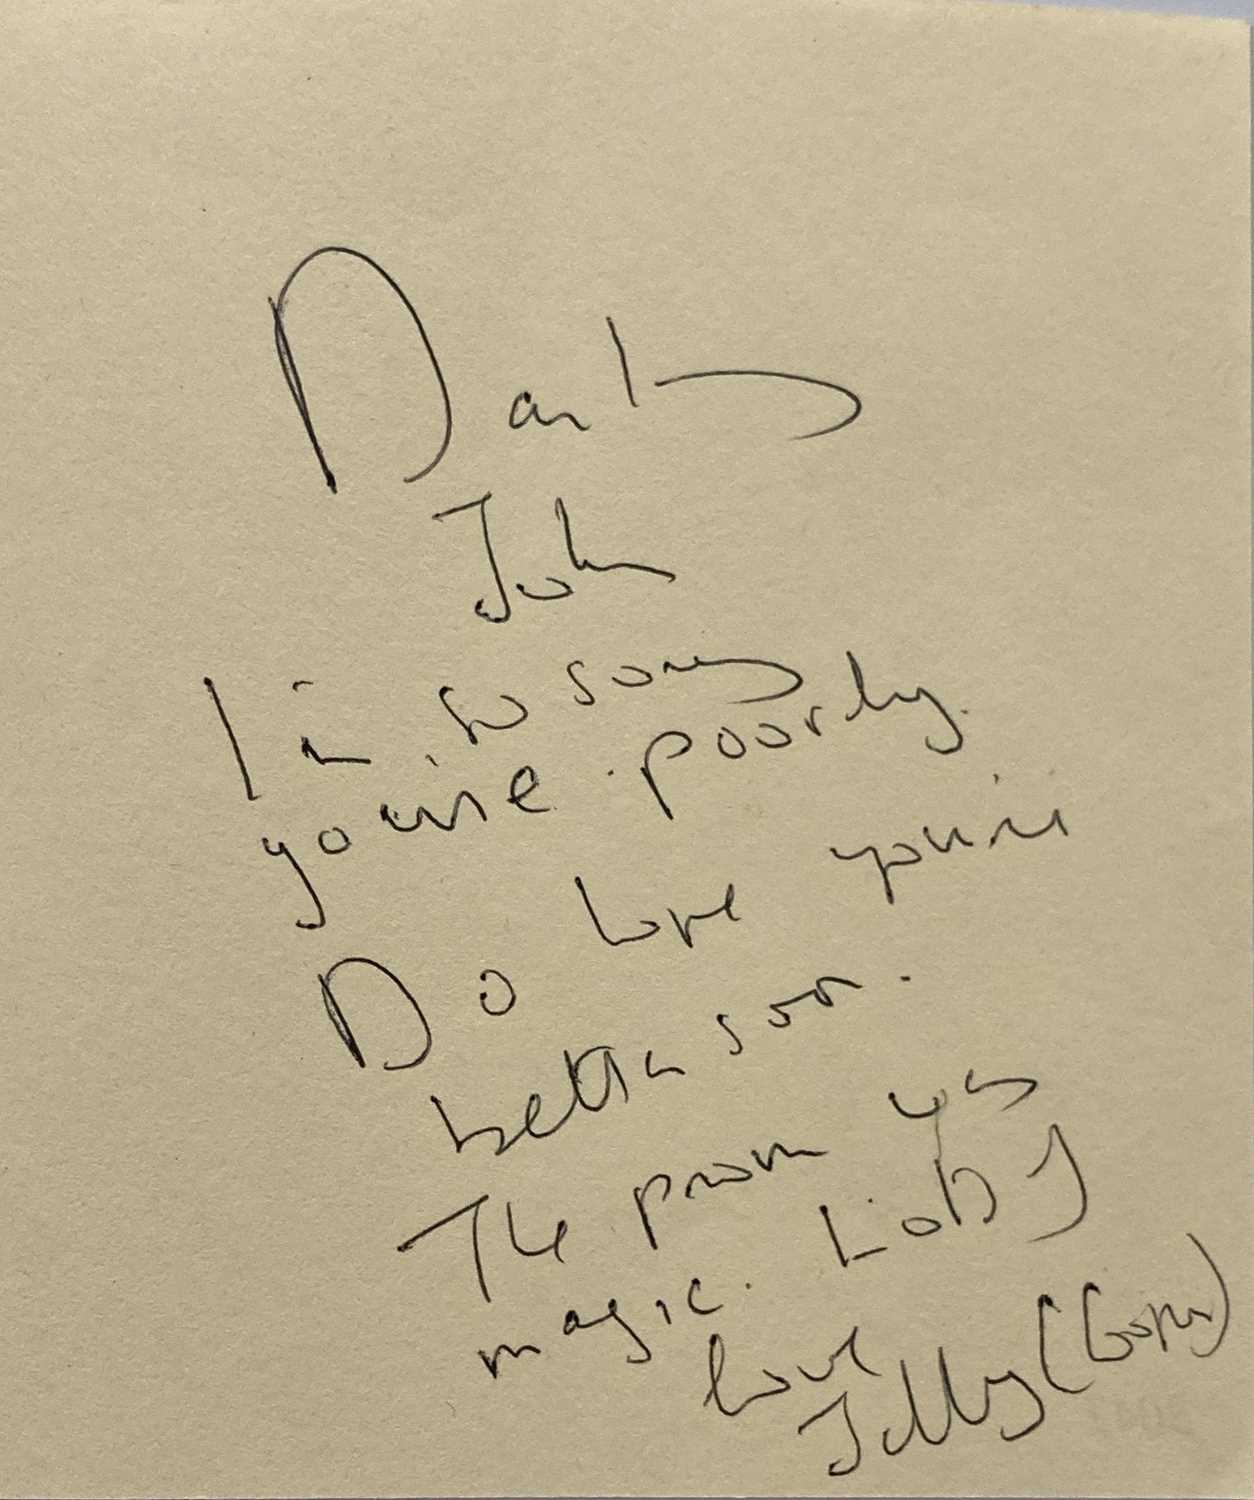 Darling
John
I'm so sorry
you're poorly.
Do hope you're
better soon.
The prom was
magic. Lots of
love
Jilly (Cooper)